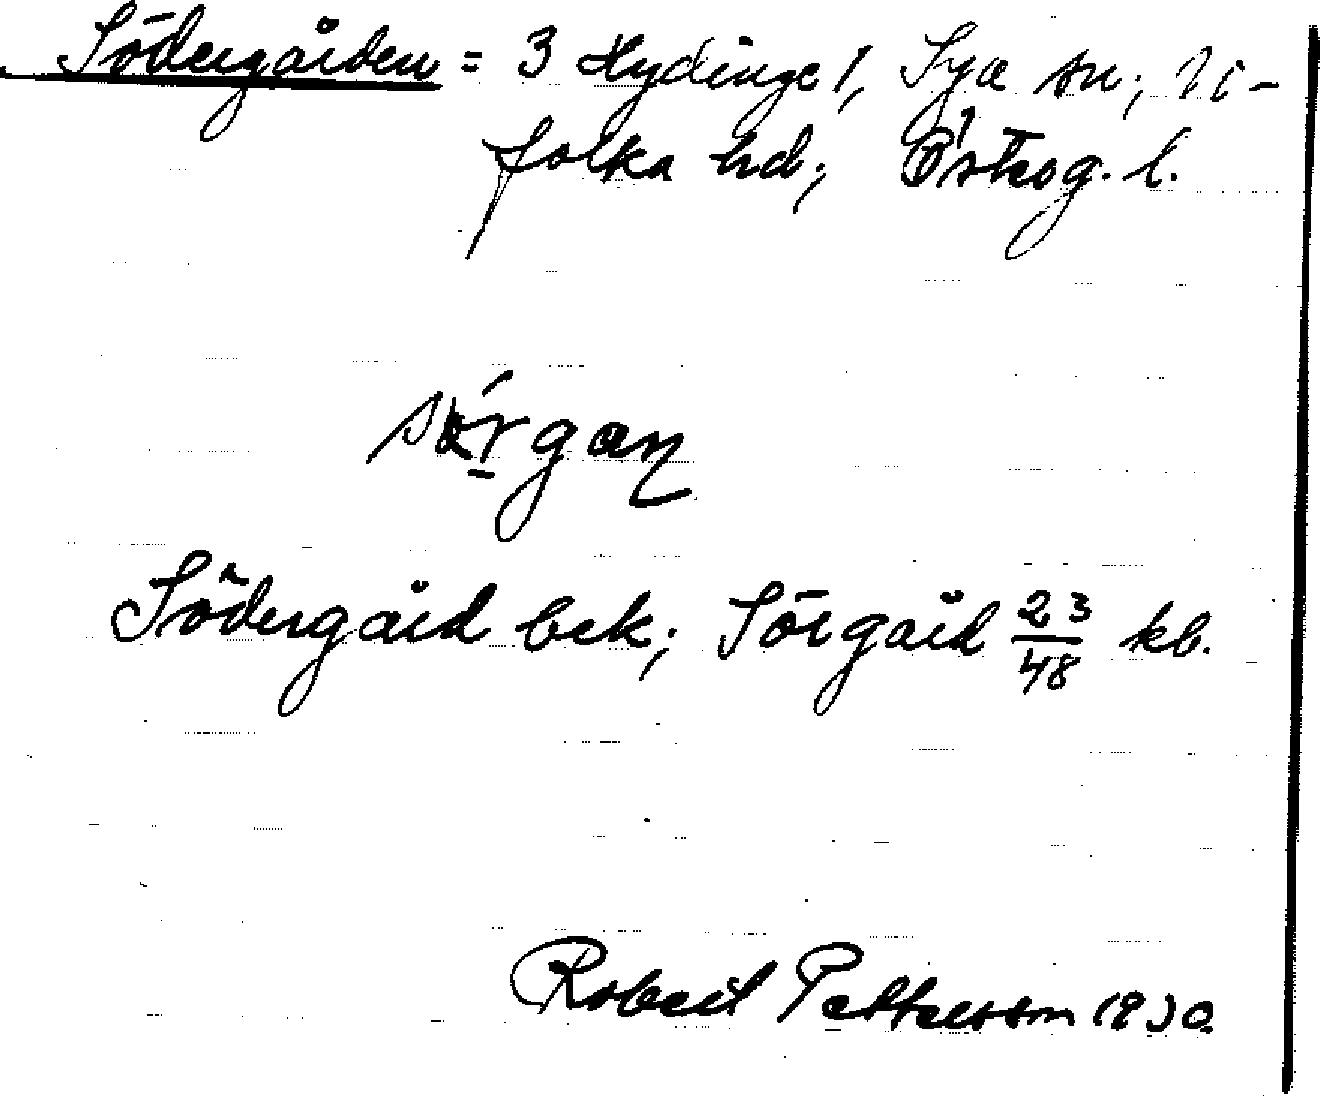 Södergården = 3 Hydinge 1, Sya sn; Vi-
folka hd; Östog. l.
Södergård bek; Sörgård 23/48 kb.
Robert Pettersson 1930.